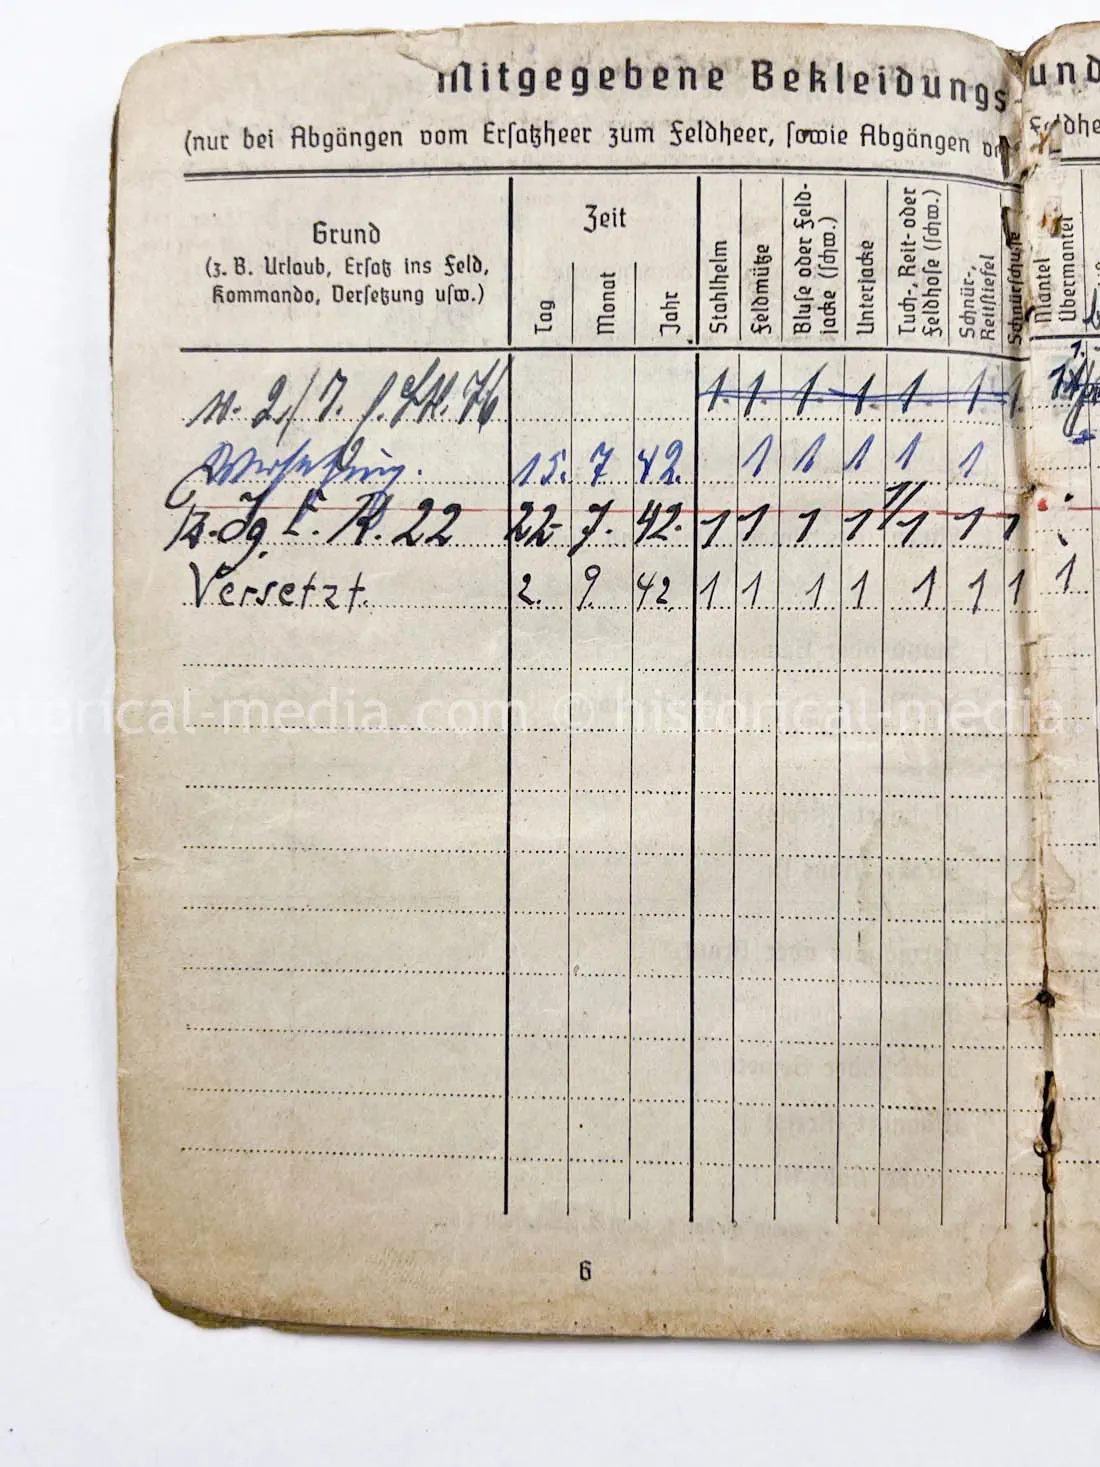 Mitgegebene Bekleidungs- und
(nur bei Abgängen vom Ersatzheer zum Feldheer, sowie Abgängen Feldhe
Grund
(z. B. Urlaub, Ersatz ins Feld,
Kommando, Versetzung usw.)
Zeit
Tag
Monat
Jahr
Stahlhelm
Feldmütze
Bluse oder Feld-
jacke (schw.)
Unterjacke
Tuch-, Reit- oder
Feldhose (schw.)
Schnür-,
Reitstiefel
Schnürschuhe
Mantel
Übermantel
1. 1. 1. 1. 1. 1. 1.
Versetzung. 15. 7 42. 1 1 1 1 1
Pz. Jg. E. K. 22 22. 7. 42. 1 1 1 1 1/1 1 1
Versetzt. 2. 9. 42 1 1 1 1 1 1 1 1
historical-media.com © historical-media
6